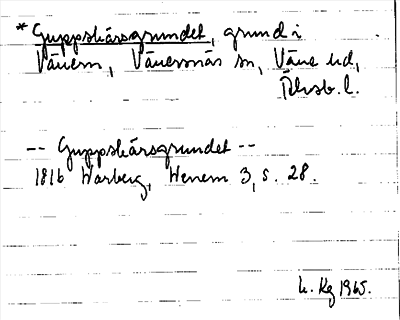 * Guppskärsgrundet, grund i
Vänern, Vänersnäs sn, Väne hd,
Älvsb. l.
-- Guppskärsgrundet --
1816 Warberg, Wenern 3, s. 28.
L. Kg 1965.